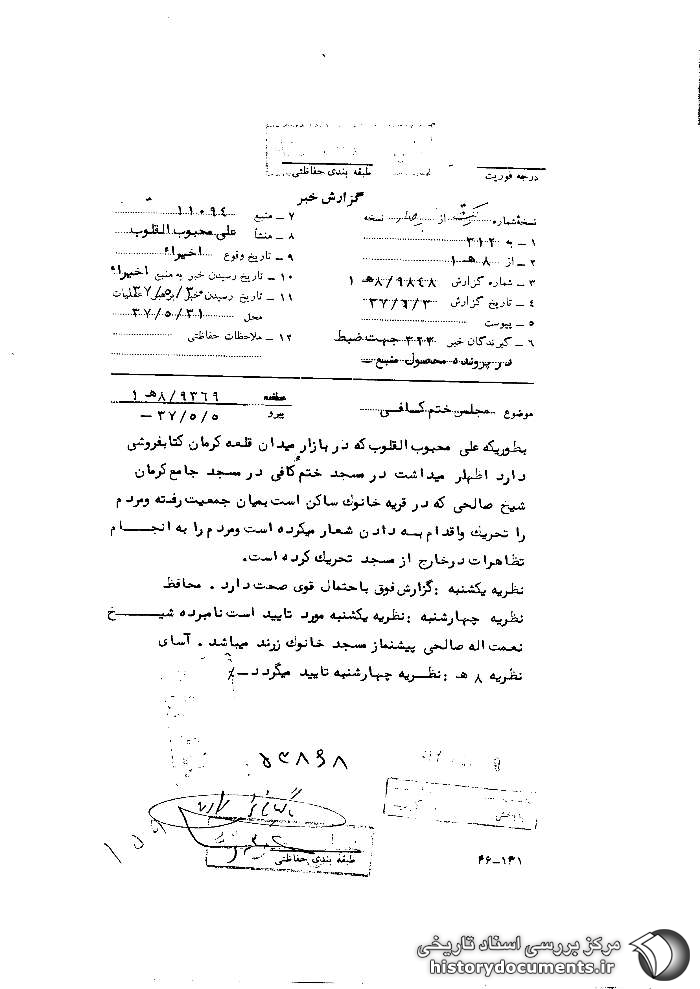 طبقه بندی حفاظتی
درجه فوریت
گزارش خبر
نسخه شماره از نسخه
۱ ـ به ۳۱۲
۲ ـ از ۸ هـ ۱
۳ ـ شماره گزارش ۸/۹۸۴۸هـ ۱
۴ ـ تاریخ گزارش ۳۷/۶/۳
۵ ـ پیوست
۶ ـ گیرندگان خبر ۳۲۳ جهت ضبط
در پرونده محصول منبع ـ
۷ ـ منبع ۱۱۰۹۴
۸ ـ منشأ علی محبوب القلوب
۹ ـ تاریخ وقوع اخیراء
۱۰ ـ تاریخ رسیدن خبر به منبع اخیراء
۱۱ ـ تاریخ رسیدن خبر برهبر عملیات ۳۷/۵/۳۰
محل ۳۷/۵/۳۱
۱۲ ـ ملاحظات حفاظتی
موضوع ـ مجلس ختم کافی ـ
۸/۹۳۶۹هـ ۱
پیرو ۳۷/۵/۵ ـ
بطوریکه علی محبوب القلوب که در بازار میدان قلعه کرمان کتابفروشی
دارد اظهار میداشت در مسجد ختم کافی در مسجد جامع کرمان
شیخ صالحی که در قریه خانوک ساکن است بمیان جمعیت رفته ومردم
را تحریک واقدام به دادن شعار میکرده است ومردم را به انجام
تظاهرات درخارج از مسجد تحریک کرده است.
نظریه یکشنبه : گزارش فوق باحتمال قوی صحت دارد . محافظ
نظریه چهارشنبه : نظریه یکشنبه مورد تایید است نامبرده شیخ
نعمت اله صالحی پیشنماز مسجد خانوک زرند میباشد . آسای
نظریه ۸ هـ : نظریه چهارشنبه تایید میگردد ـ
طبقه بندی حفاظتی
۴۶-۱۳۱
مرکز بررسی اسناد تاریخی
historydocuments.ir